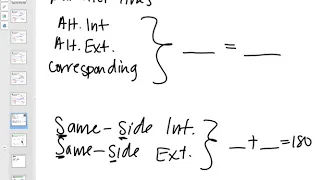 Alt. Int
Alt. Ext.
corresponding
__ = __
Same-Side Int.
Same-Side Ext.
__+__=180